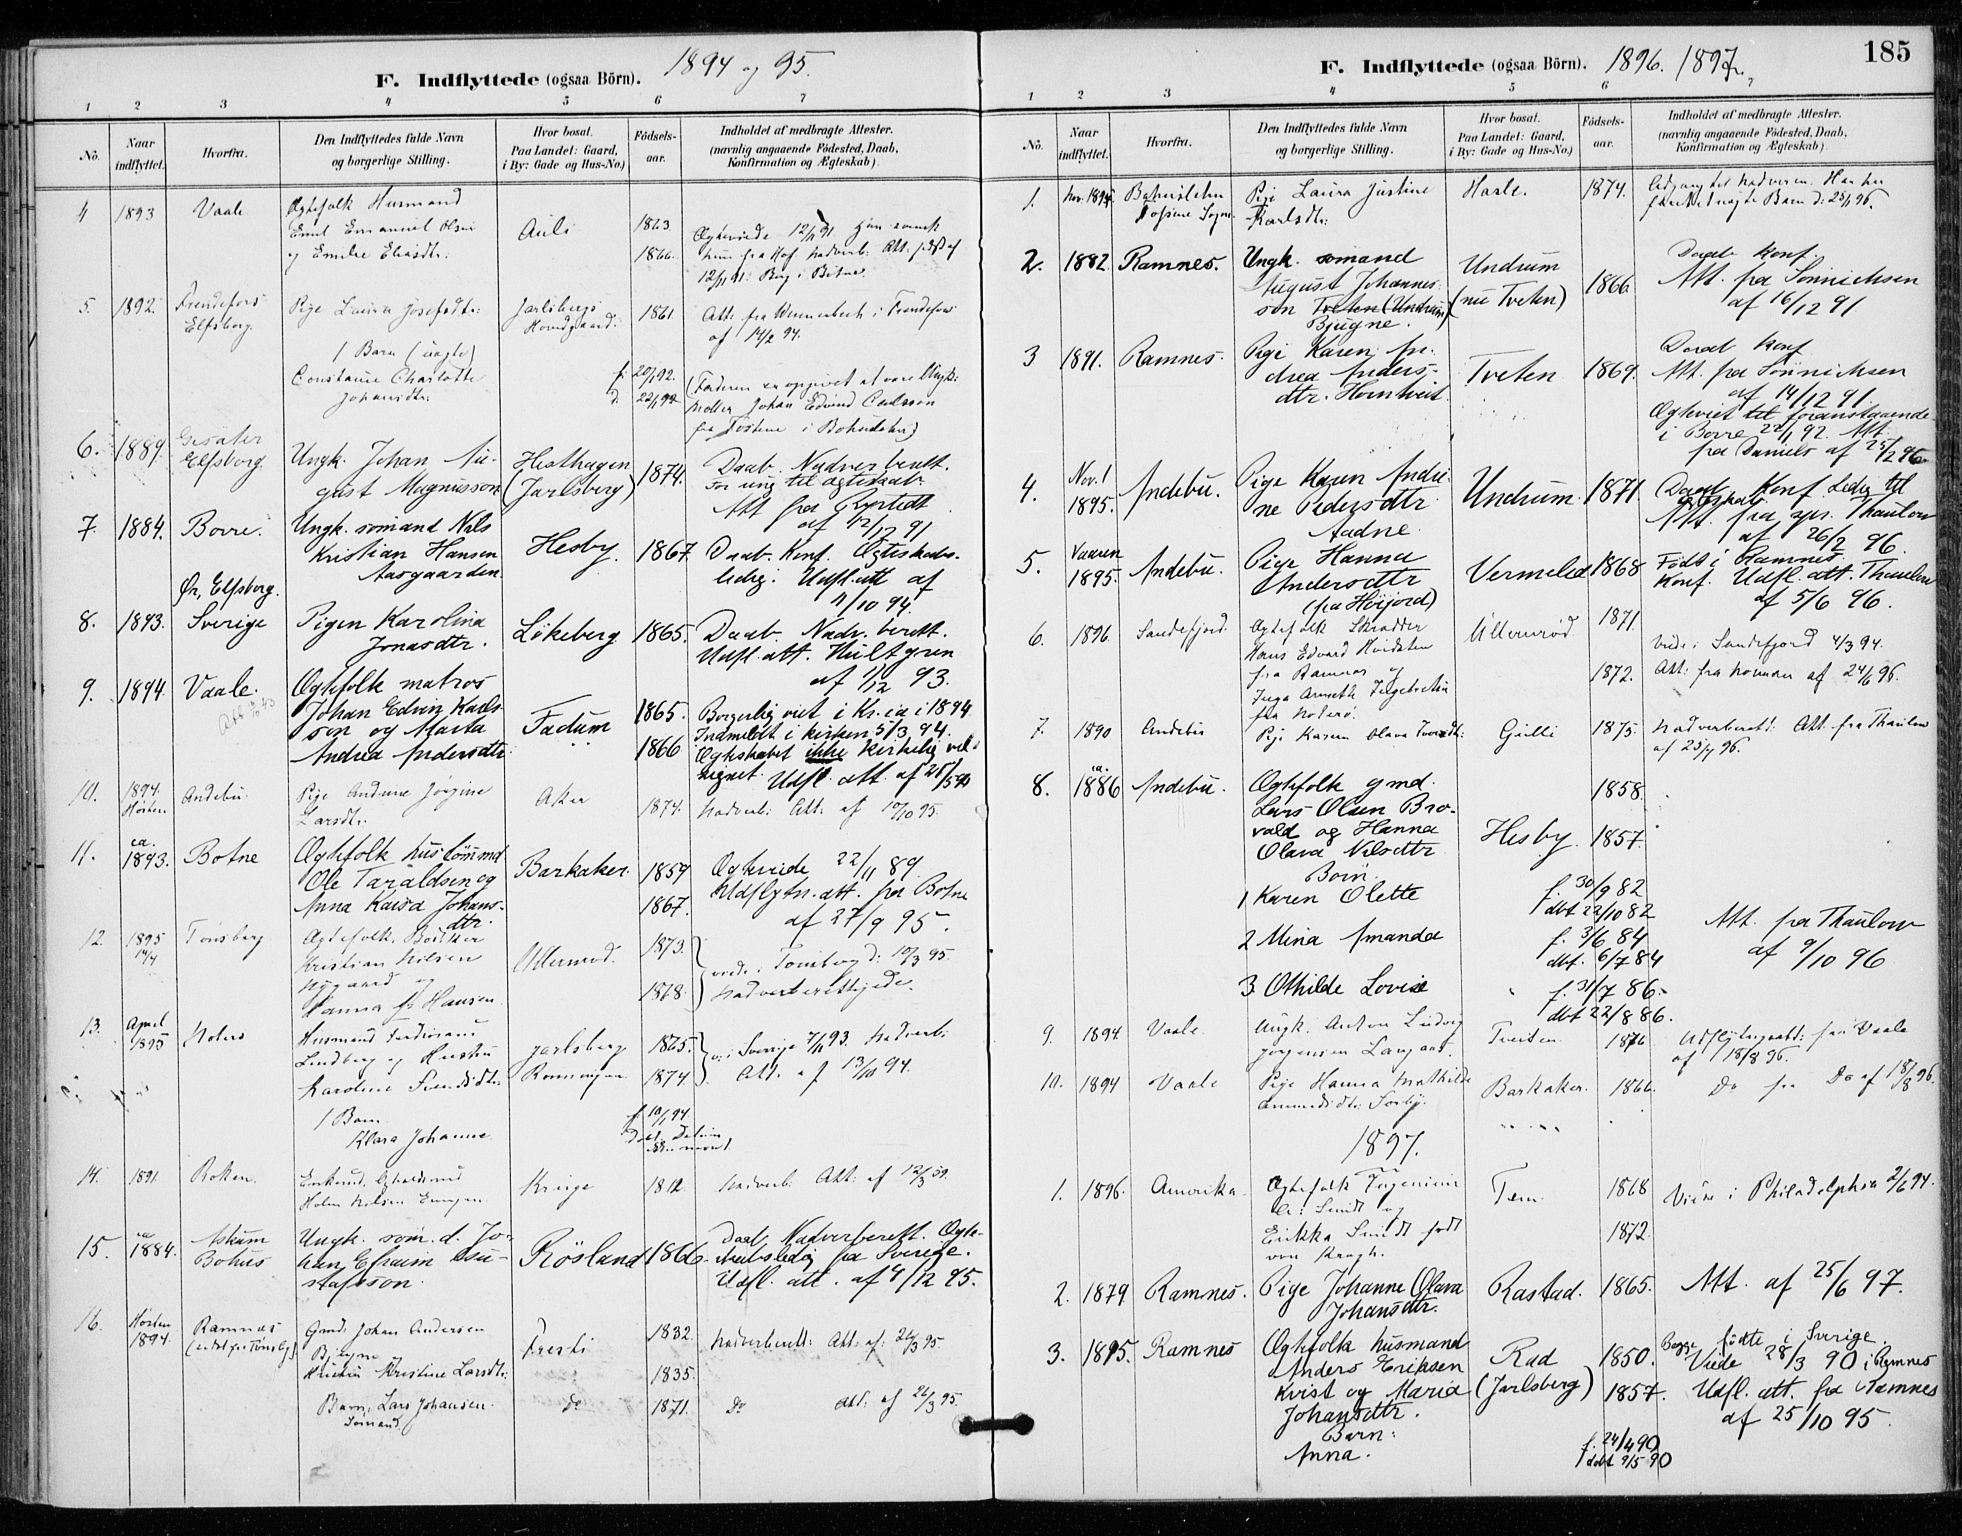 F. Indflyttede (ogsaa Börn). 1894 og 95.
1 2 3 4 5 6 7
No. Naar indflyttet. Hvorfra. Den Indflyttedes fulde Navn og borgerlige Stilling. Hvor bosat. Paa Landet: Gaard, i By: Gade og Hus-No.) Födsels-aar. Indholdet af medbragte Attester. (navnlig angaaende Födested, Daab, Konfirmation og Ægteskab).
4 1893 Vaale Ægtefolk Husmand
Emil Emanuel Olsen Auli 1863. Ægteviede 12/11 91
og Emilie Eliasdtr. 1866.
12/11 91.
5. 1892. Frendefors Pige Laura Josefsdtr: Jarlsbergs 1861. Att: fra Wennerbeck i Frendefors
Elfsborg. Hovedgaard. af 14/2 94.
1 Barn (uægte)
Constance Charlotte f. 20/1 92. (Faderen er opgivet at være Ungk:
Johansdtr: d. 22/1 92. Johan Edvind Carlsson
fra i Bohuslen)
6. 1889. Elfsborg. Ungk. Johan Au- Hesthagen 1874. Daab. Nadverberett.
gust Magnusson (Jarlsberg) For ung til ægteskab
Att fra
af 12/12 91
7. 1884. Borre. Ungk. sömand Nils
Kristian Hansen Hesby. 1867 Daab. Konf. Ægteskabs-
Aasgaarden ledig. Udfl. att af
11/10 94.
Ør, Elfsborg.
8. 1893. Sverige Pigen Karolina Lökeberg 1865. Daab. Nadv. berett.
Jonasdtr. Udfl. att. Hultgren
af 1/12 93.
9. 1894. Vaale. Ægtefolk matros
Johan Edvin Karls- 1865. Borgerlig viet i Kr.ia i 1894
son og Marta Fadum Indmeldt i kirken 5/3 94.
Andrea Andersdtr: 1866 Ægteskabet ikke kirkelig vel-
signet. Udfl. att. af 25/5 94
10. 1894. Andebu Pige Andrine Jörgine Aker 1874. Nadverb: Att: af 17/10 95.
Hösten Larsdtr:
11. ca. 1893. Botne Ægtefolk hustömmd Barkaker. 1859 Ægteviede 22/11 89.
Ole Taraldsen og Udflytn. att. fra Botne
Anna Kaisa Johans- 1867. af 27/9 95.
dtr.
12. 1895 Tönsberg Ægtefolk. Bödker 1873.
14/4 Kristian Nilsen Ullernrød. viede i Tönsberg d: 17/3 95.
Nygaard og 1868. Nadverberettigede.
Hanna f: Hansen
13. April 1895 Husmand Ferdinand
Lindberg og Hustru Jarlsberg 1865. i Sverige 7/11 93. Nadverb:
Karoline 1874. Att. af 13/10 94.
1 Barn f. 10/1 94.
Klara Johanne.
14. 1891. Enkemd,
Holm Nilsen 1812. Nadverb. Att: af
15. ca 1884. Askum Ungk. söm.d. Jo- Daab, Nadverberett. Ægte-
Bohus han Efraim Gu- Rösland 1866. skabsledig fra Sverige.
stafsson. Udfl. att. af 9/12 95.
16. Hösten 1894. Ramnæs Gmd: Johan Andersen 1832. Nadverberett: Att: af: 26/3 95.
Bjugne Fresti
Hustru Kristine Larsdtr: 1835.
Barn: Lars Johansen do 1871. Do Att: af 26/3 95.
Sömand

F. Indflyttede (ogsaa Börn). 1896. 1897. 185
1 2 3 4 5 6 7
No. Naar indflyttet. Hvorfra. Den Indflyttedes fulde Navn og borgerlige Stilling. Hvor bosat. Paa Landet: Gaard, i By: Gade og Hus-No.) Födsels-aar. Indholdet af medbragte Attester. (navnlig angaaende Födested, Daab, Konfirmation og Ægteskab).
1. Nov. 1895. Bohuslehn Pige Laura Justine Hasle. 1874. Adgang til Nadveren. Har her
Sogn. Karlsdtr: uægte Barn d: 25/1 96.
2. 1882. Ramnes. Ungk. sömand Undrum Daab konf.
August Johannes- (nu Tveten) 1866 Att. fra Sönnichsen
son Tveten (Undrum) af 16/12 91
Bjugne.
3 1891. Ramnes. Pige Karen An- Daab konf
drea Anders- Tveten 1869. Att. fra Sönnichsen
dtr. Horntvet. af 14/12 91.
Ægteviet til foranstaaende
i Borre 22/1 92. Att.
fra Daniels af 25/2 96.
4. Nov. 1895. Andebu. Pige Karen Andri- Undrum. 1871. Daab Konf Ledig til
ne Pedersdtr ægteskab
Aadne. Att. fra spr. Thaulow
af 26/2 96.
5. Vaaren 1895. Andebu. Pige Hanna Vermelid 1868 Født i Ramnes.
Andersdtr Konf. Udfl. att. Thaulow
(fra Höijord) af 5/6 96.
6. 1896. Sandefjord. Ægtefolk Skrædder Ullernrød 1871. Viede i Sandefjord 4/3 94.
Hans Edvard Hvidsten
fra Ramnæs og 1872. Att: fra Norman af 24/6 96.
Inga Annette Ingebretsen
fra Noterö.
7. 1890 Andebu Pige Karen Olava Gulli 1875. Nadverberett: Att: fra Thaulow
af 25/7 96.
8. ca. 1886 Andebu. Ægtefolk gmd. 1858.
Lars Olsen Bro-
vald og Hanna Hesby 1857.
Olava Nilsdtr
Börn.
1 Karen Olette f. 30/9 82
dbt 22/10 82
2 Mina Amanda f. 3/6 84 Att. fra Thaulow
dbt. 6/7 84 af 9/10 96
3 Othilde Lovise f. 31/7 86.
dbt 22/8 86.
9. 1894. Vaale. Ungk. Anton Ludvig Tveiten 1876 Udflytningsatt: fra Vaale
Jörgensen Langaas. af 18/8 96.
10. 1894 Vaale Pige Hanna Mathilde Barkaker. 1866. Do fra Do af 18/8 96.
1897.
1. 1896. Amerika Ægtefolk Ingeniör Tem 1868 Viede i Philadelphia 2/6 94.
Smidt og
Erikka Smidt födt 1872.
von Krogh.
2. 1879 Ramnes. Pige Johanne Olava Rastad. 1865. Att. af 25/6 97.
Johansdtr.
3. 1895. Ramnes Ægtefolk husmand Rad 1850. Begge fødte i Sverige.
Anders Eriksen (Jarlsberg) Viede 28/3 90 i Ramnes
Kvist og Maria 1857. Udfl. att. fra Ramnes
Johansdtr. af 25/10 95
Barn: f. 24/4 90
Anna. döbt 9/5 90